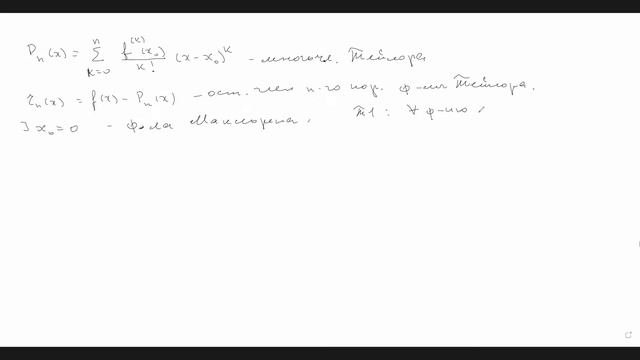 P_n(x) = \sum_{k=0}^{n} \frac{f^{(k)}(x_0)}{k!} (x-x_0)^k - многочл. Тейлора
r_n(x) = f(x) - P_n(x) - ост. член n-го пор. ф-лы Тейлора.
] x_0 = 0 - ф-ла Маклорена. T1: ∀ ф-ию